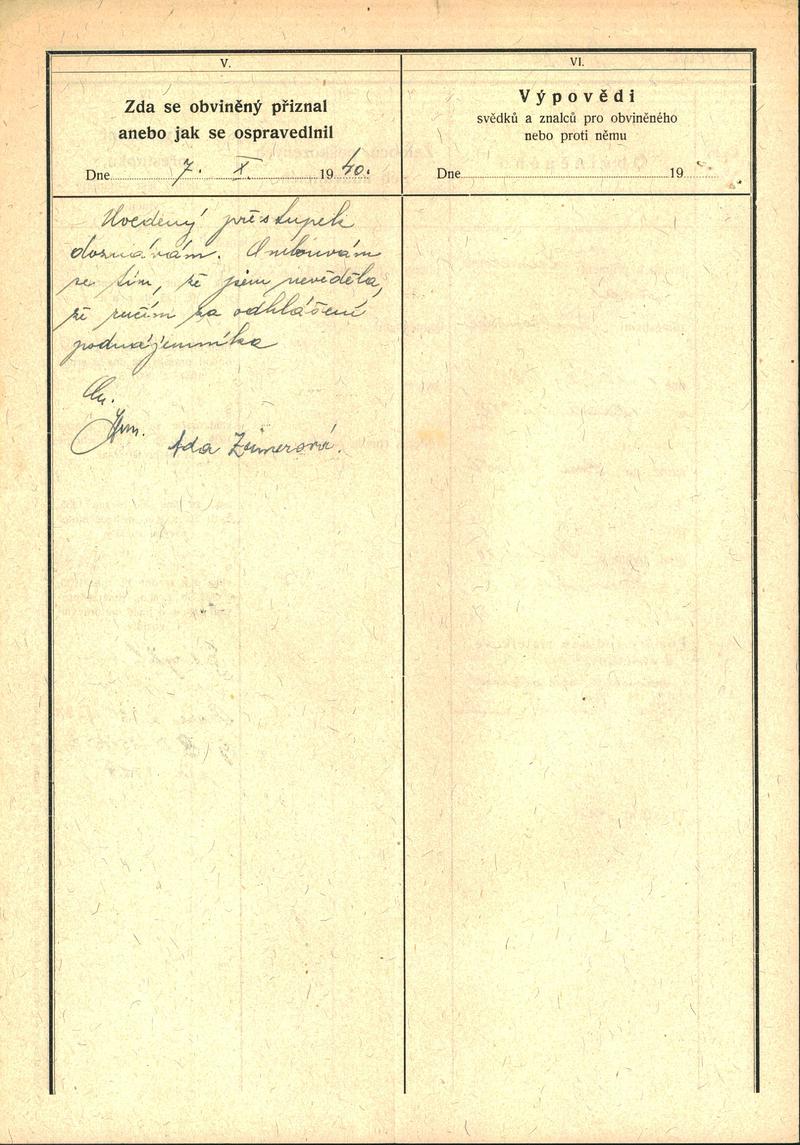 V.
Zda se obviněný přiznal
anebo jak se ospravedlnil
Dne 7. X. 1940.
Uvedený přestupek
doznávám. Omlouvám
se tím, že jsem nevěděla,
že ručím za odhlášení
podnájemníka
Ada
VI.
Výpovědi
svědků a znalců pro obviněného
nebo proti němu
Dne 19